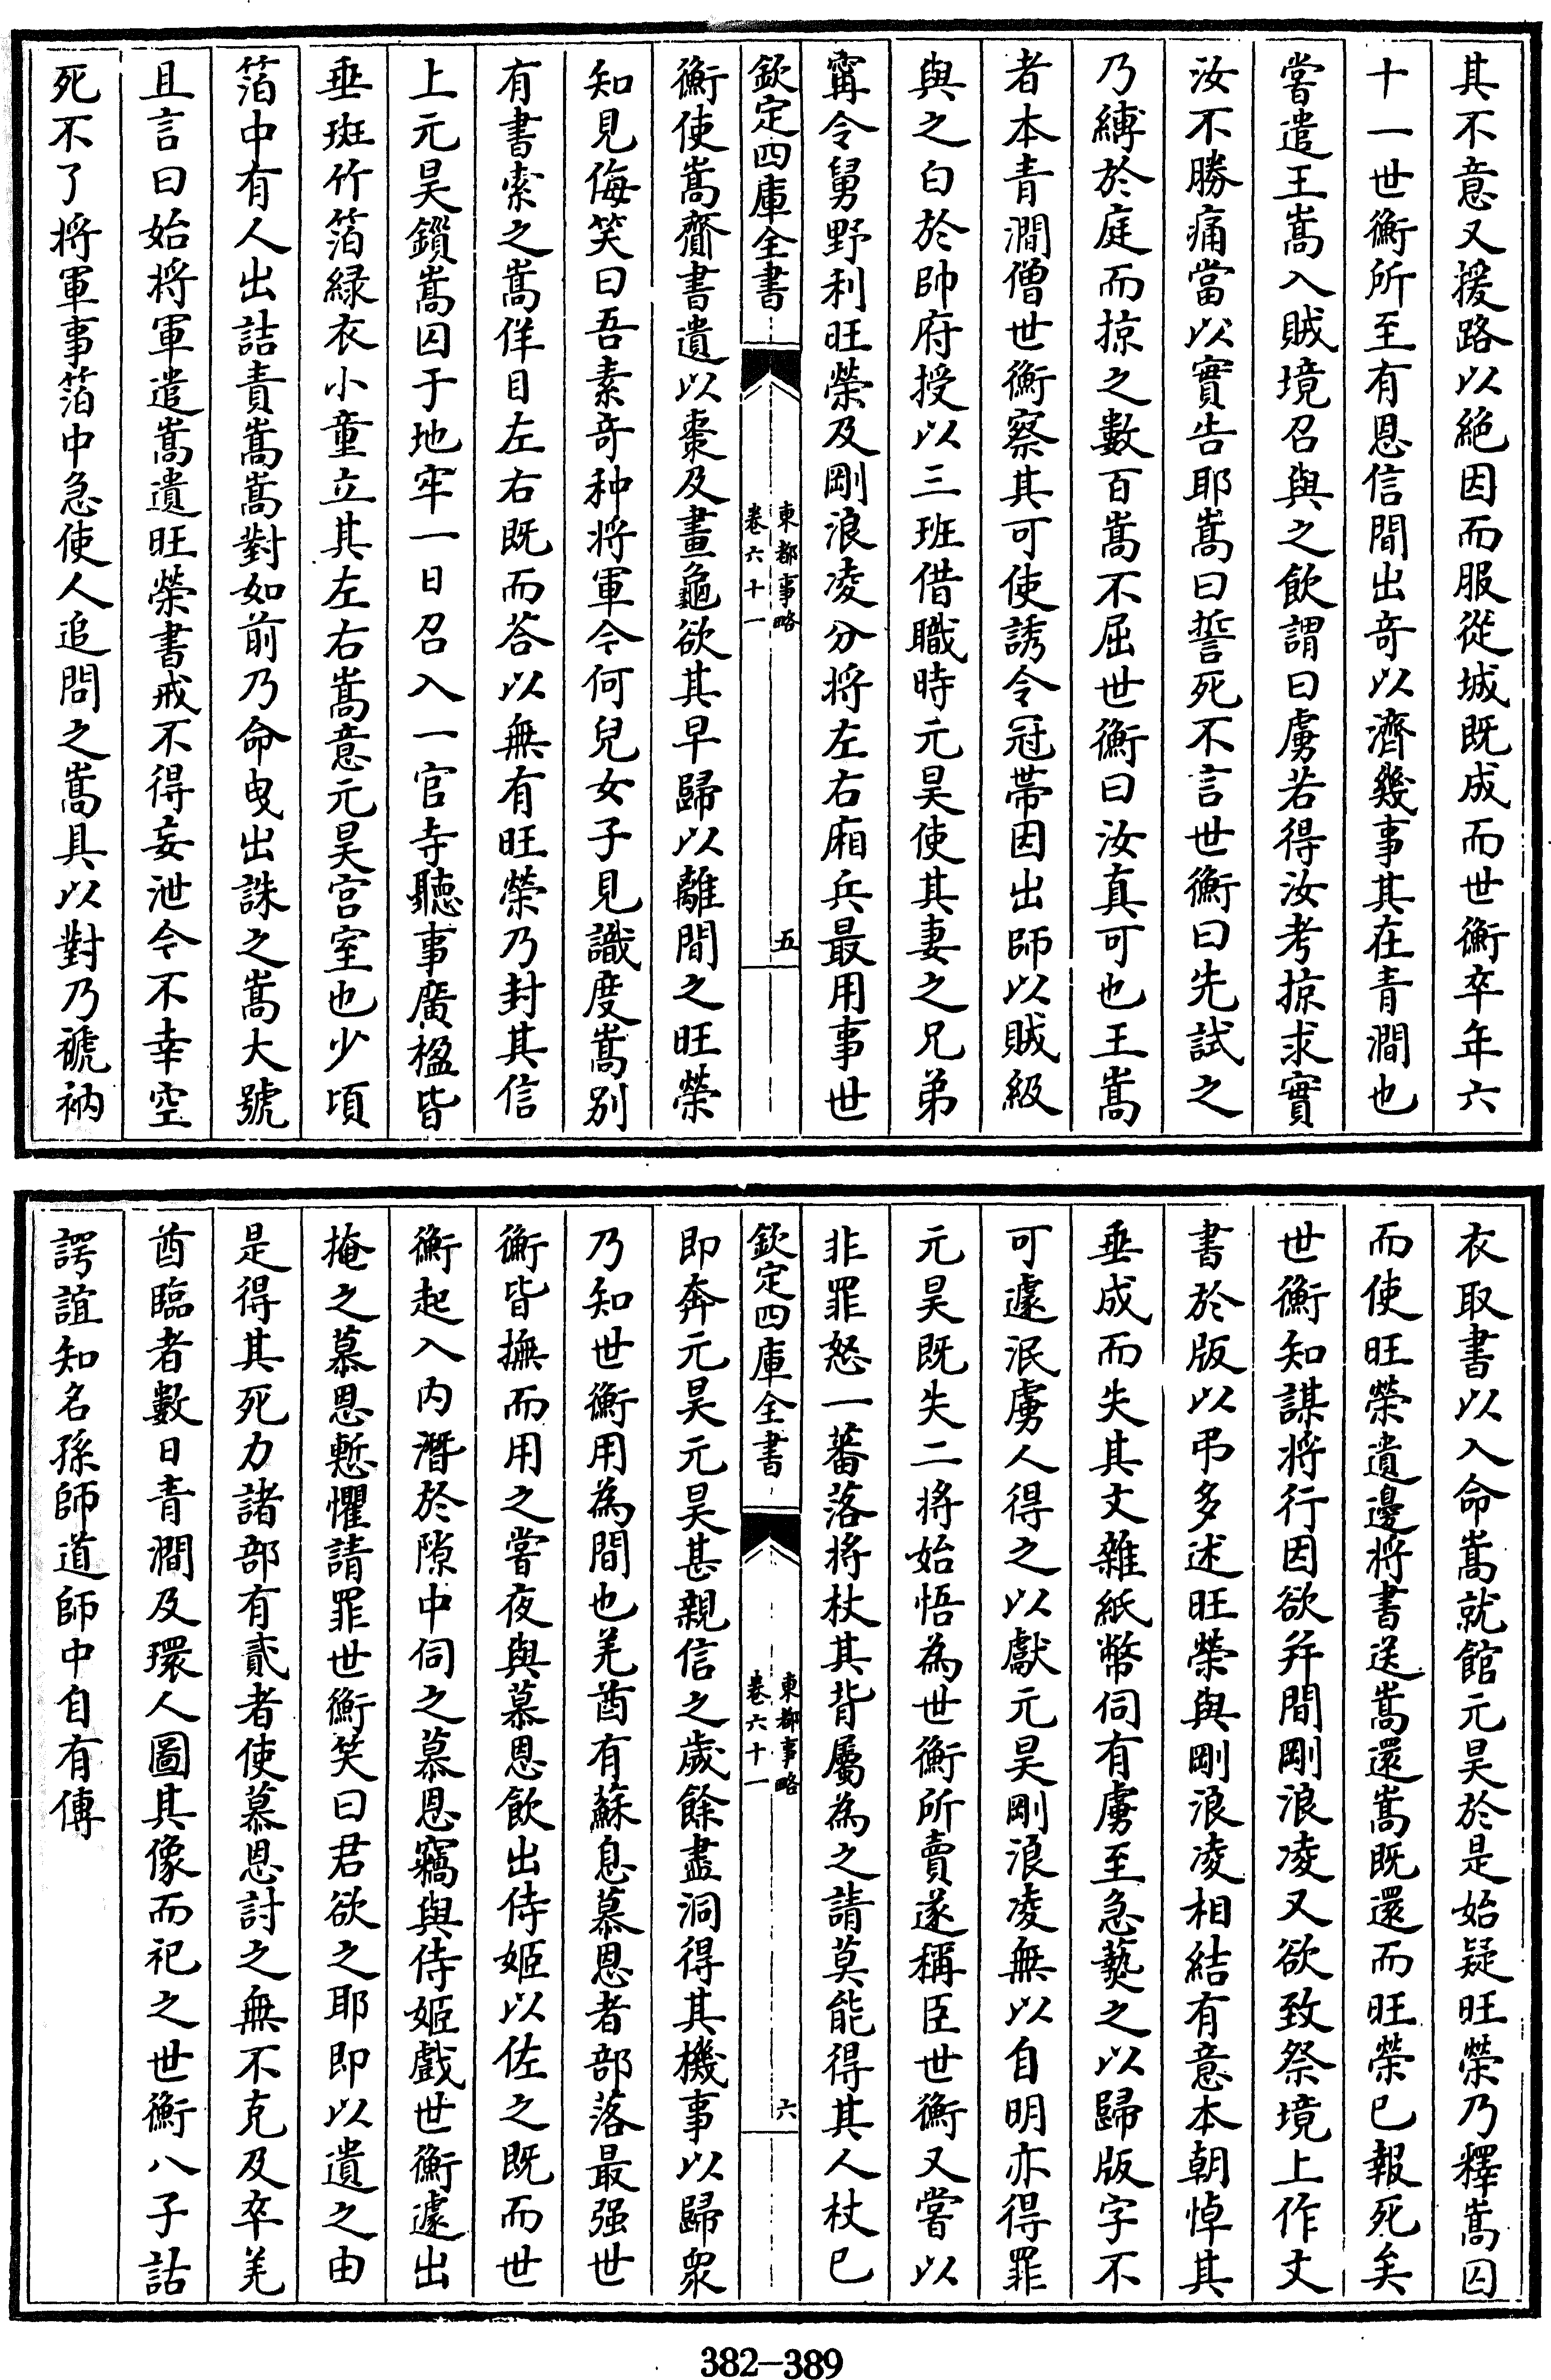 其不意又援路以絶因而服從城既成而世衡卒年六
十一世衡所至有恩信間出竒以濟幾事其在青澗也
嘗遣王嵩入賊境召與之飲謂曰虜若得汝考掠求實
汝不勝痛當以實告耶嵩曰誓死不言世衡曰先試之
乃縛於庭而掠之數百嵩不屈世衡曰汝真可也王嵩
者本青澗僧世衡察其可使誘令冠帯因出師以賊級
與之白於帥府授以三班借職時元昊使其妻之兄弟
甯令舅野利旺榮及剛浪凌分将左右廂兵最用事世
欽定四庫全書
東都事略
卷六十一
五
衡使嵩齎書遺以棗及畫龜欲其早歸以離間之旺榮
知見侮笑曰吾素竒种将軍今何兒女子見識度嵩别
有書索之嵩佯目左右既而荅以無有旺榮乃封其信
上元昊鎻嵩囚于地牢一日召入一官寺聽事廣楹皆
垂斑竹箔緑衣小童立其左右嵩意元昊宫室也少頃
箔中有人出詰責嵩嵩對如前乃命曵出誅之嵩大號
且言曰始将軍遣嵩遺旺榮書戒不得妄泄今不幸空
死不了将軍事箔中急使人追問之嵩具以對乃褫衲
衣取書以入命嵩就館元昊於是始疑旺榮乃釋嵩囚
而使旺榮遺邊将書送嵩還嵩既還而旺榮已報死矣
世衡知謀将行因欲并間剛浪凌又欲致祭境上作文
書於版以弔多述旺榮與剛浪凌相結有意本朝悼其
垂成而失其文雜紙幣伺有虜至急爇之以歸版字不
可遽泯虜人得之以獻元昊剛浪凌無以自明亦得罪
元昊既失二将始悟為世衡所賣遂稱臣世衡又嘗以
非罪怒一蕃落将杖其背屬為之請莫能得其人杖已
欽定四庫全書
東都事略
卷六十一
六
即奔元昊元昊甚親信之歲餘盡洞得其機事以歸衆
乃知世衡用為間也羌酋有蘇息慕恩者部落最强世
衡皆撫而用之嘗夜與慕恩飲出侍姬以佐之既而世
衡起入内潛於隙中伺之慕恩竊與侍姬戲世衡遽出
掩之慕恩慙懼請罪世衡笑曰君欲之耶即以遺之由
是得其死力諸部有貳者使慕恩討之無不克及卒羌
酋臨者數日青澗及環人圖其像而祀之世衡八子詁
諤誼知名孫師道師中自有傳
382-389